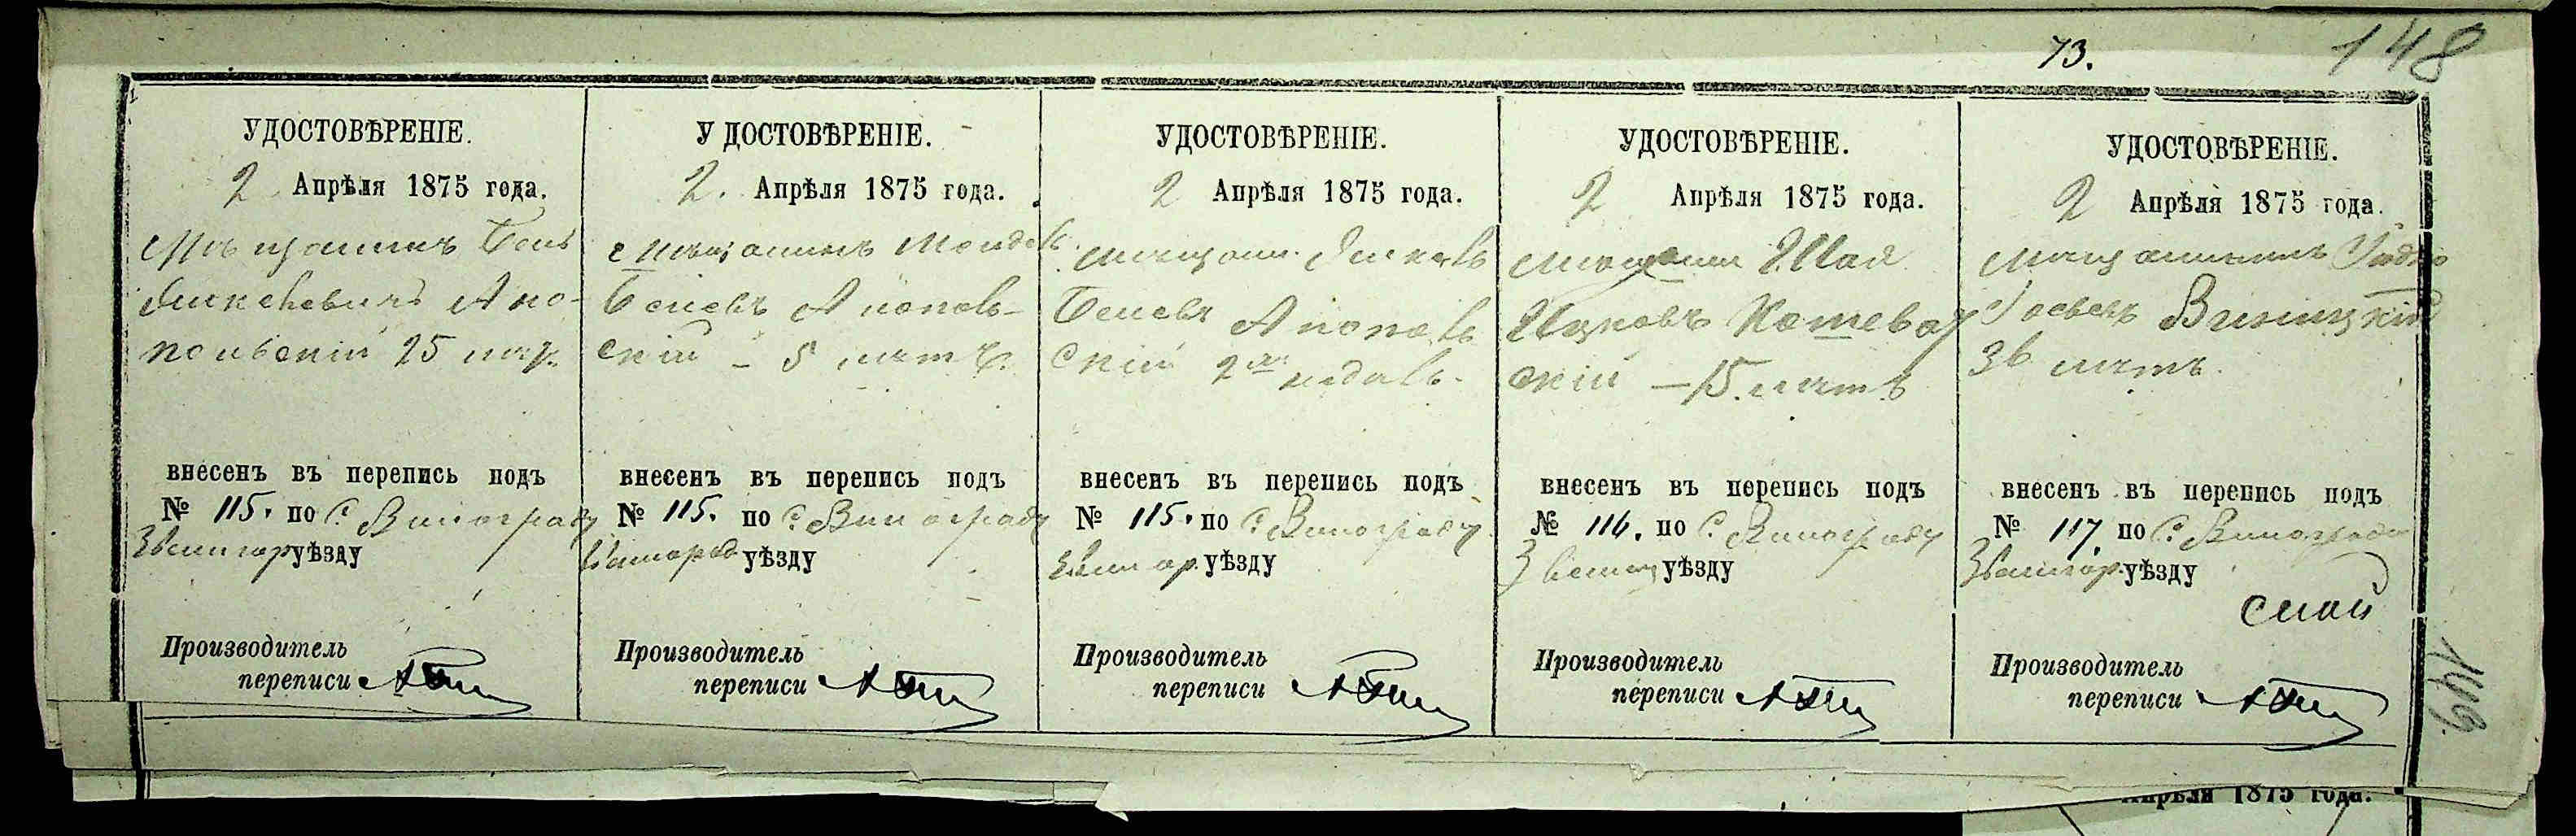 73.
148
УДОСТОВѢРЕНІЕ.
2 Апрѣля 1875 года.
Мѣщанинъ Бень
по
25 лѣт
внесенъ въ перепись подъ
№ 115. по С. Винограду
Звенигор уѣзду
Производитель
переписи
УДОСТОВѢРЕНІЕ.
2. Апрѣля 1875 года.
Мѣщанинъ
скій – 5 лѣтъ
внесенъ въ перепись подъ
№ 115. по С. Винограду
уѣзду
Производитель
переписи
УДОСТОВѢРЕНІЕ.
2 Апрѣля 1875 года.
мѣщан.
скій 2хъ недѣль
внесенъ въ перепись подъ
№ 115. по С. Винограду
Звенигор. уѣзду
Производитель
переписи
УДОСТОВѢРЕНІЕ.
2 Апрѣля 1875 года.
Шая
Ицковъ Кошеват
скій – 15 лѣтъ
внесенъ въ перепись подъ
№ 116. по С. Винограду
Звениг уѣзду
Производитель
переписи
УДОСТОВѢРЕНІЕ.
2 Апрѣля 1875 года.
мѣщанинъ
Винницкій
36 лѣтъ.
внесенъ въ перепись подъ
№ 117. по С. Винограду
Звенигор. уѣзду
Производитель
переписи
149
Апрѣля 1875 года.